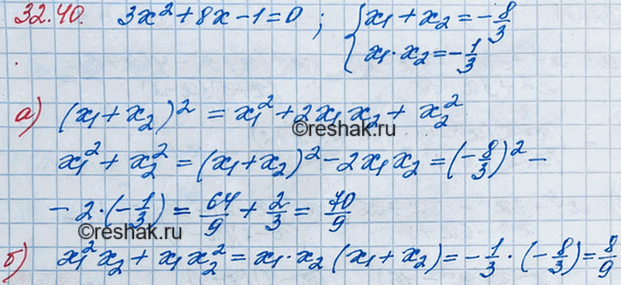 32.40. 3x² + 8x - 1 = 0 ; { x₁ + x₂ = -8/3
x₁ · x₂ = -1/3
а) (x₁ + x₂)² = x₁² + 2x₁x₂ + x₂²
©reshak.ru
x₁² + x₂² = (x₁ + x₂)² - 2x₁x₂ = (-8/3)² -
- 2 · (-1/3) = 64/9 + 2/3 = 70/9
©reshak.ru
б) x₁²x₂ + x₁x₂² = x₁ · x₂ (x₁ + x₂) = -1/3 · (-8/3) = 8/9